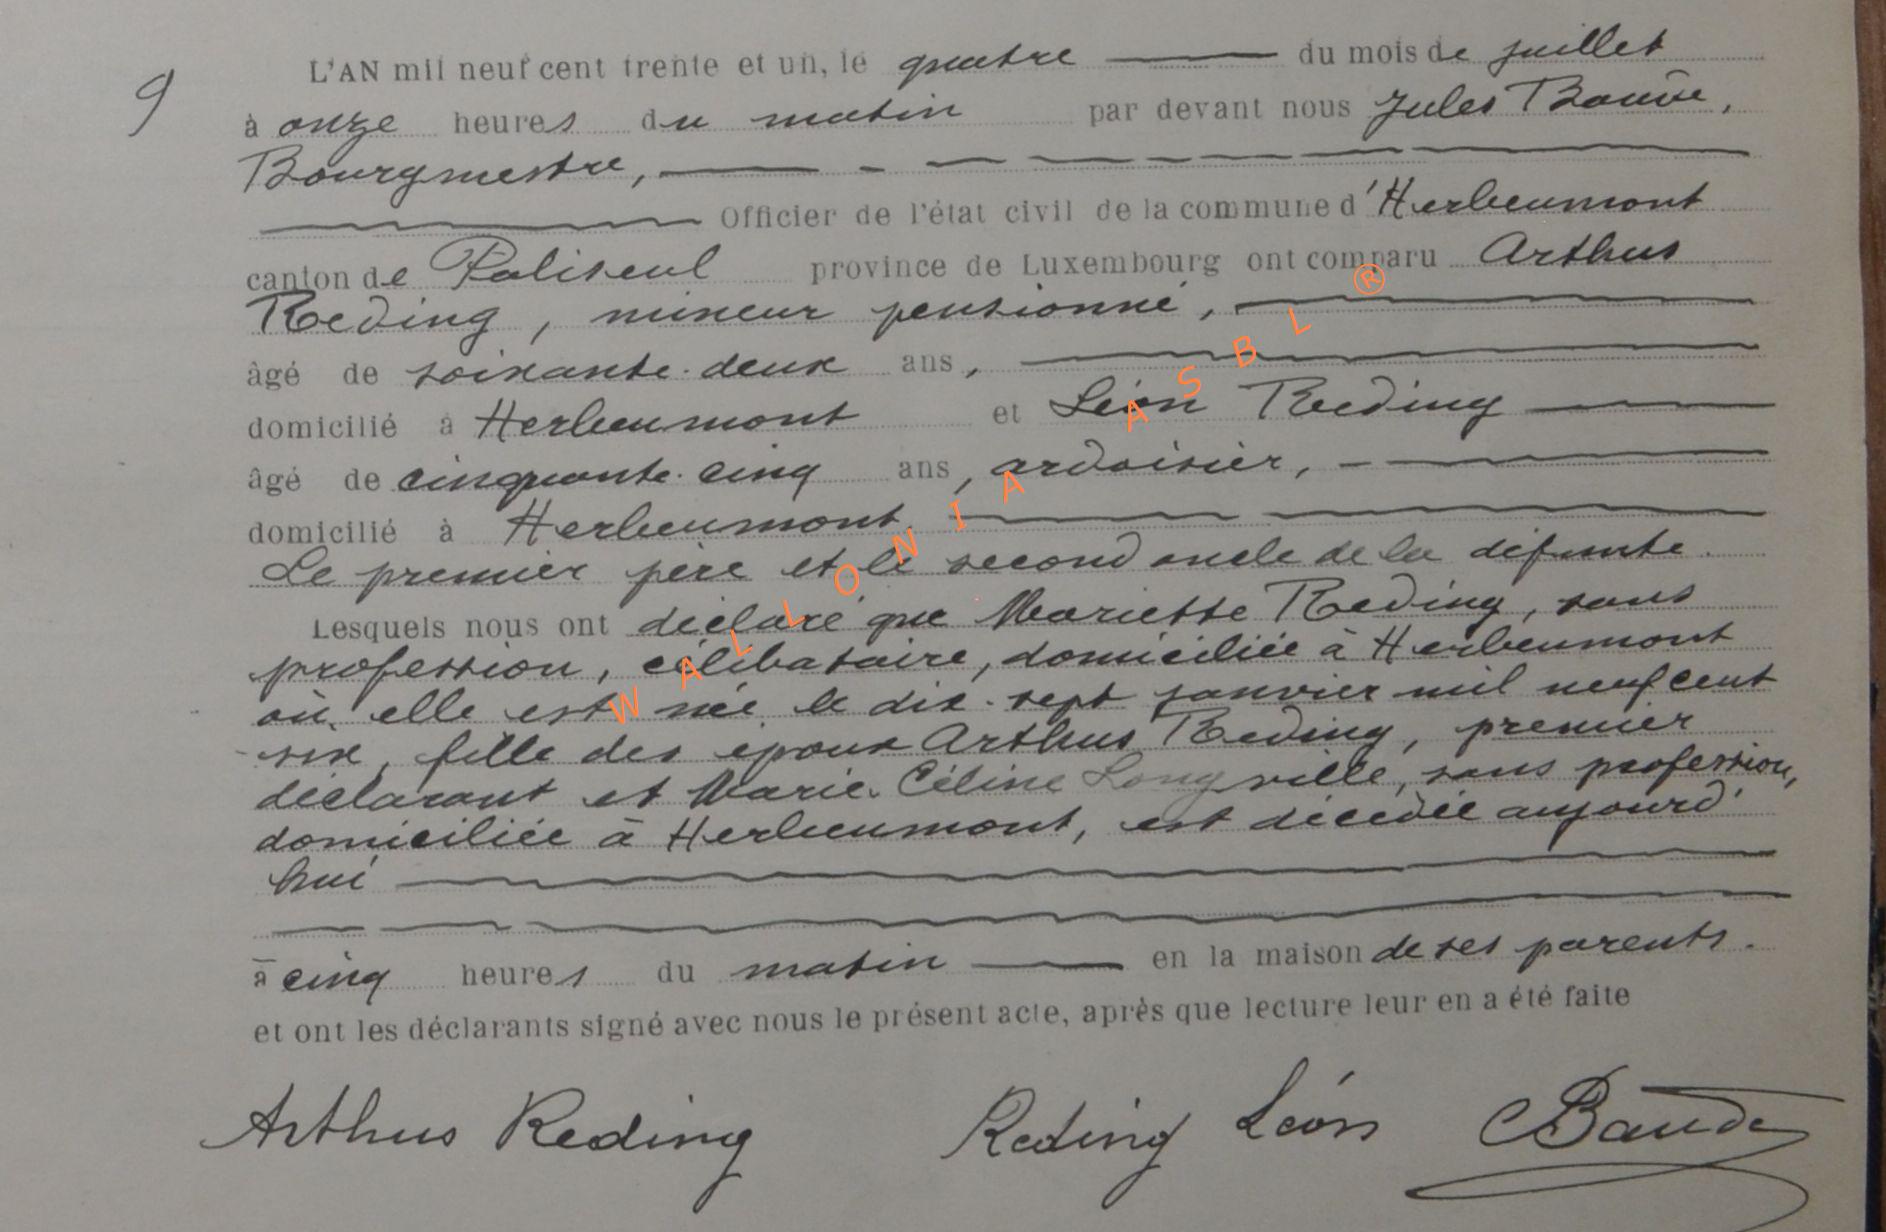 9
L'AN mil neuf cent trente et un, le quatre du mois de juillet
à onze heures du matin par devant nous Jules Baude,
Bourgmestre,
Officier de l'état civil de la commune d'Herbeumont
canton de Paliseul province de Luxembourg ont comparu Arthus
Reding, mineur pensionné,
âgé de soixante-deux ans,
domicilié à Herbeumont et Léon Reding
âgé de cinquante-cinq ans, ardoisier,
domicilié à Herbeumont.
Le premier père et le second oncle de la défunte.
Lesquels nous ont déclaré que Mariette Reding, sans
profession, célibataire, domiciliée à Herbeumont
où elle est née le dix-sept janvier mil neuf cent
six, fille des époux Arthus Reding, premier
déclarant et Marie-Céline Longville, sans profession,
domiciliée à Herbeumont, est décédée aujourd'
hui
à cinq heures du matin en la maison de ses parents.
et ont les déclarants signé avec nous le présent acte, après que lecture leur en a été faite
Arthus Reding Reding Léon Baude
WALLONIA ASBL ®